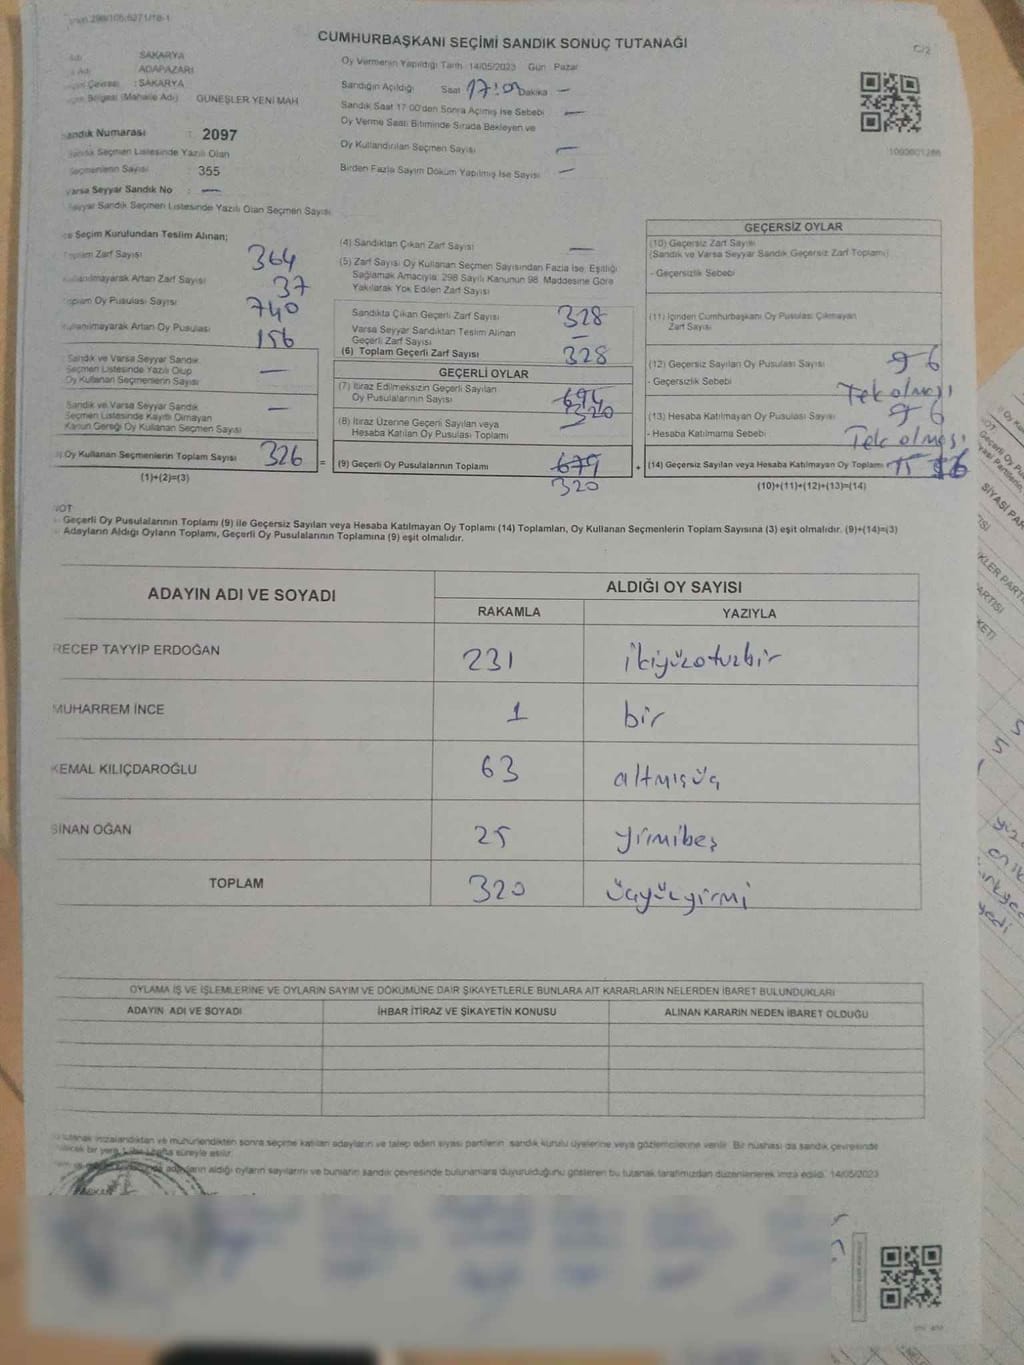 CUMHURBAŞKANI SEÇİMİ SANDIK SONUÇ TUTANAĞI
C/2
SAKARYA
ADAPAZARI
: SAKARYA
Bölgesi (Mahalle Adı) GÜNEŞLER YENİ MAH
Sandık Numarası : 2097
Sandık Seçmen Listesinde Yazılı Olan
Seçmenlerin Sayısı : 355
Varsa Seyyar Sandık No : —
Seyyar Sandık Seçmen Listesinde Yazılı Olan Seçmen Sayısı
Oy Vermenin Yapıldığı Tarih :14/05/2023 Gün : Pazar
Sandığın Açıldığı Saat 17:00 Dakika —
Sandık Saat 17.00'den Sonra Açmış İse Sebebi —
Oy Verme Saati Bitiminde Sırada Bekleyen ve
Oy Kullandırılan Seçmen Sayısı —
Birden Fazla Sayım Döküm Yapılmış İse Sayısı —
1060601266
Seçim Kurulundan Teslim Alınan;
Toplam Zarf Sayısı 364
Kullanılmayarak Artan Zarf Sayısı 37
Toplam Oy Pusulası Sayısı 740
Kullanılmayarak Artan Oy Pusulası 156
Sandık ve Varsa Seyyar Sandık
Seçmen Listesinde Yazılı Olup
Oy Kullanan Seçmenlerin Sayısı —
Sandık ve Varsa Seyyar Sandık
Seçmen Listesinde Kaydı Olmayan
Kanun Gereği Oy Kullanan Seçmen Sayısı —
Oy Kullanan Seçmenlerin Toplam Sayısı 326 =
(1)+(2)=(3)
(4) Sandıktan Çıkan Zarf Sayısı —
(5) Zarf Sayısı Oy Kullanan Seçmen Sayısından Fazla İse, Eşitliği
Sağlamak Amacıyla, 298 Sayılı Kanunun 98. Maddesine Göre
Yakılarak Yok Edilen Zarf Sayısı
Sandıkta Çıkan Geçerli Zarf Sayısı 328
Varsa Seyyar Sandıktan Teslim Alınan
Geçerli Zarf Sayısı —
(6) Toplam Geçerli Zarf Sayısı 328
GEÇERLİ OYLAR
(7) İtiraz Edilmeksizin Geçerli Sayılan
Oy Pusulalarının Sayısı 320
(8) İtiraz Üzerine Geçerli Sayılan veya
Hesaba Katılan Oy Pusulası Toplamı —
(9) Geçerli Oy Pusulalarının Toplamı 679 +
320
GEÇERSİZ OYLAR
(10) Geçersiz Zarf Sayısı
(Sandık ve Varsa Seyyar Sandık Geçersiz Zarf Toplamı)
- Geçersizlik Sebebi
(11) İçinden Cumhurbaşkanı Oy Pusulası Çıkmayan
Zarf Sayısı
(12) Geçersiz Sayılan Oy Pusulası Sayısı 6
- Geçersizlik Sebebi Tek olması
(13) Hesaba Katılmayan Oy Pusulası Sayısı 6
- Hesaba Katılmama Sebebi Tek olması
(14) Geçersiz Sayılan veya Hesaba Katılmayan Oy Toplamı
(10)+(11)+(12)+(13)=(14)
NOT
Geçerli Oy Pusulalarının Toplamı (9) ile Geçersiz Sayılan veya Hesaba Katılmayan Oy Toplamı (14) Toplamları, Oy Kullanan Seçmenlerin Toplam Sayısına (3) eşit olmalıdır. (9)+(14)=(3)
Adayların Aldığı Oyların Toplamı, Geçerli Oy Pusulalarının Toplamına (9) eşit olmalıdır.
ADAYIN ADI VE SOYADI
ALDIĞI OY SAYISI
RAKAMLA YAZIYLA
RECEP TAYYİP ERDOĞAN 231 ikiyüzotuzbir
MUHARREM İNCE 1 bir
KEMAL KILIÇDAROĞLU 63 altmışüç
SİNAN OĞAN 25 yirmibeş
TOPLAM 320 üçyüzyirmi
OYLAMA İŞ VE İŞLEMLERİNE VE OYLARIN SAYIM VE DÖKÜMÜNE DAİR ŞİKAYETLERLE BUNLARA AİT KARARLARIN NELERDEN İBARET BULUNDUKLARI
ADAYIN ADI VE SOYADI İHBAR İTİRAZ VE ŞİKAYETİN KONUSU ALINAN KARARIN NEDEN İBARET OLDUĞU
imzalandıktan ve mühürlendikten sonra seçime katılan adayların ve talep eden siyasi partilerin, sandık kurulu üyelerine veya gözlemcilerine verilir. Bir nüshası da sandık çevresinde
bir yere 1 hafta süreyle asılır.
adayların aldığı oyların sayılarını ve bunların sandık çevresinde bulunanlara duyurulduğunu gösteren bu tutanak tarafımızdan düzenlenerek imza edildi. 14/05/2023